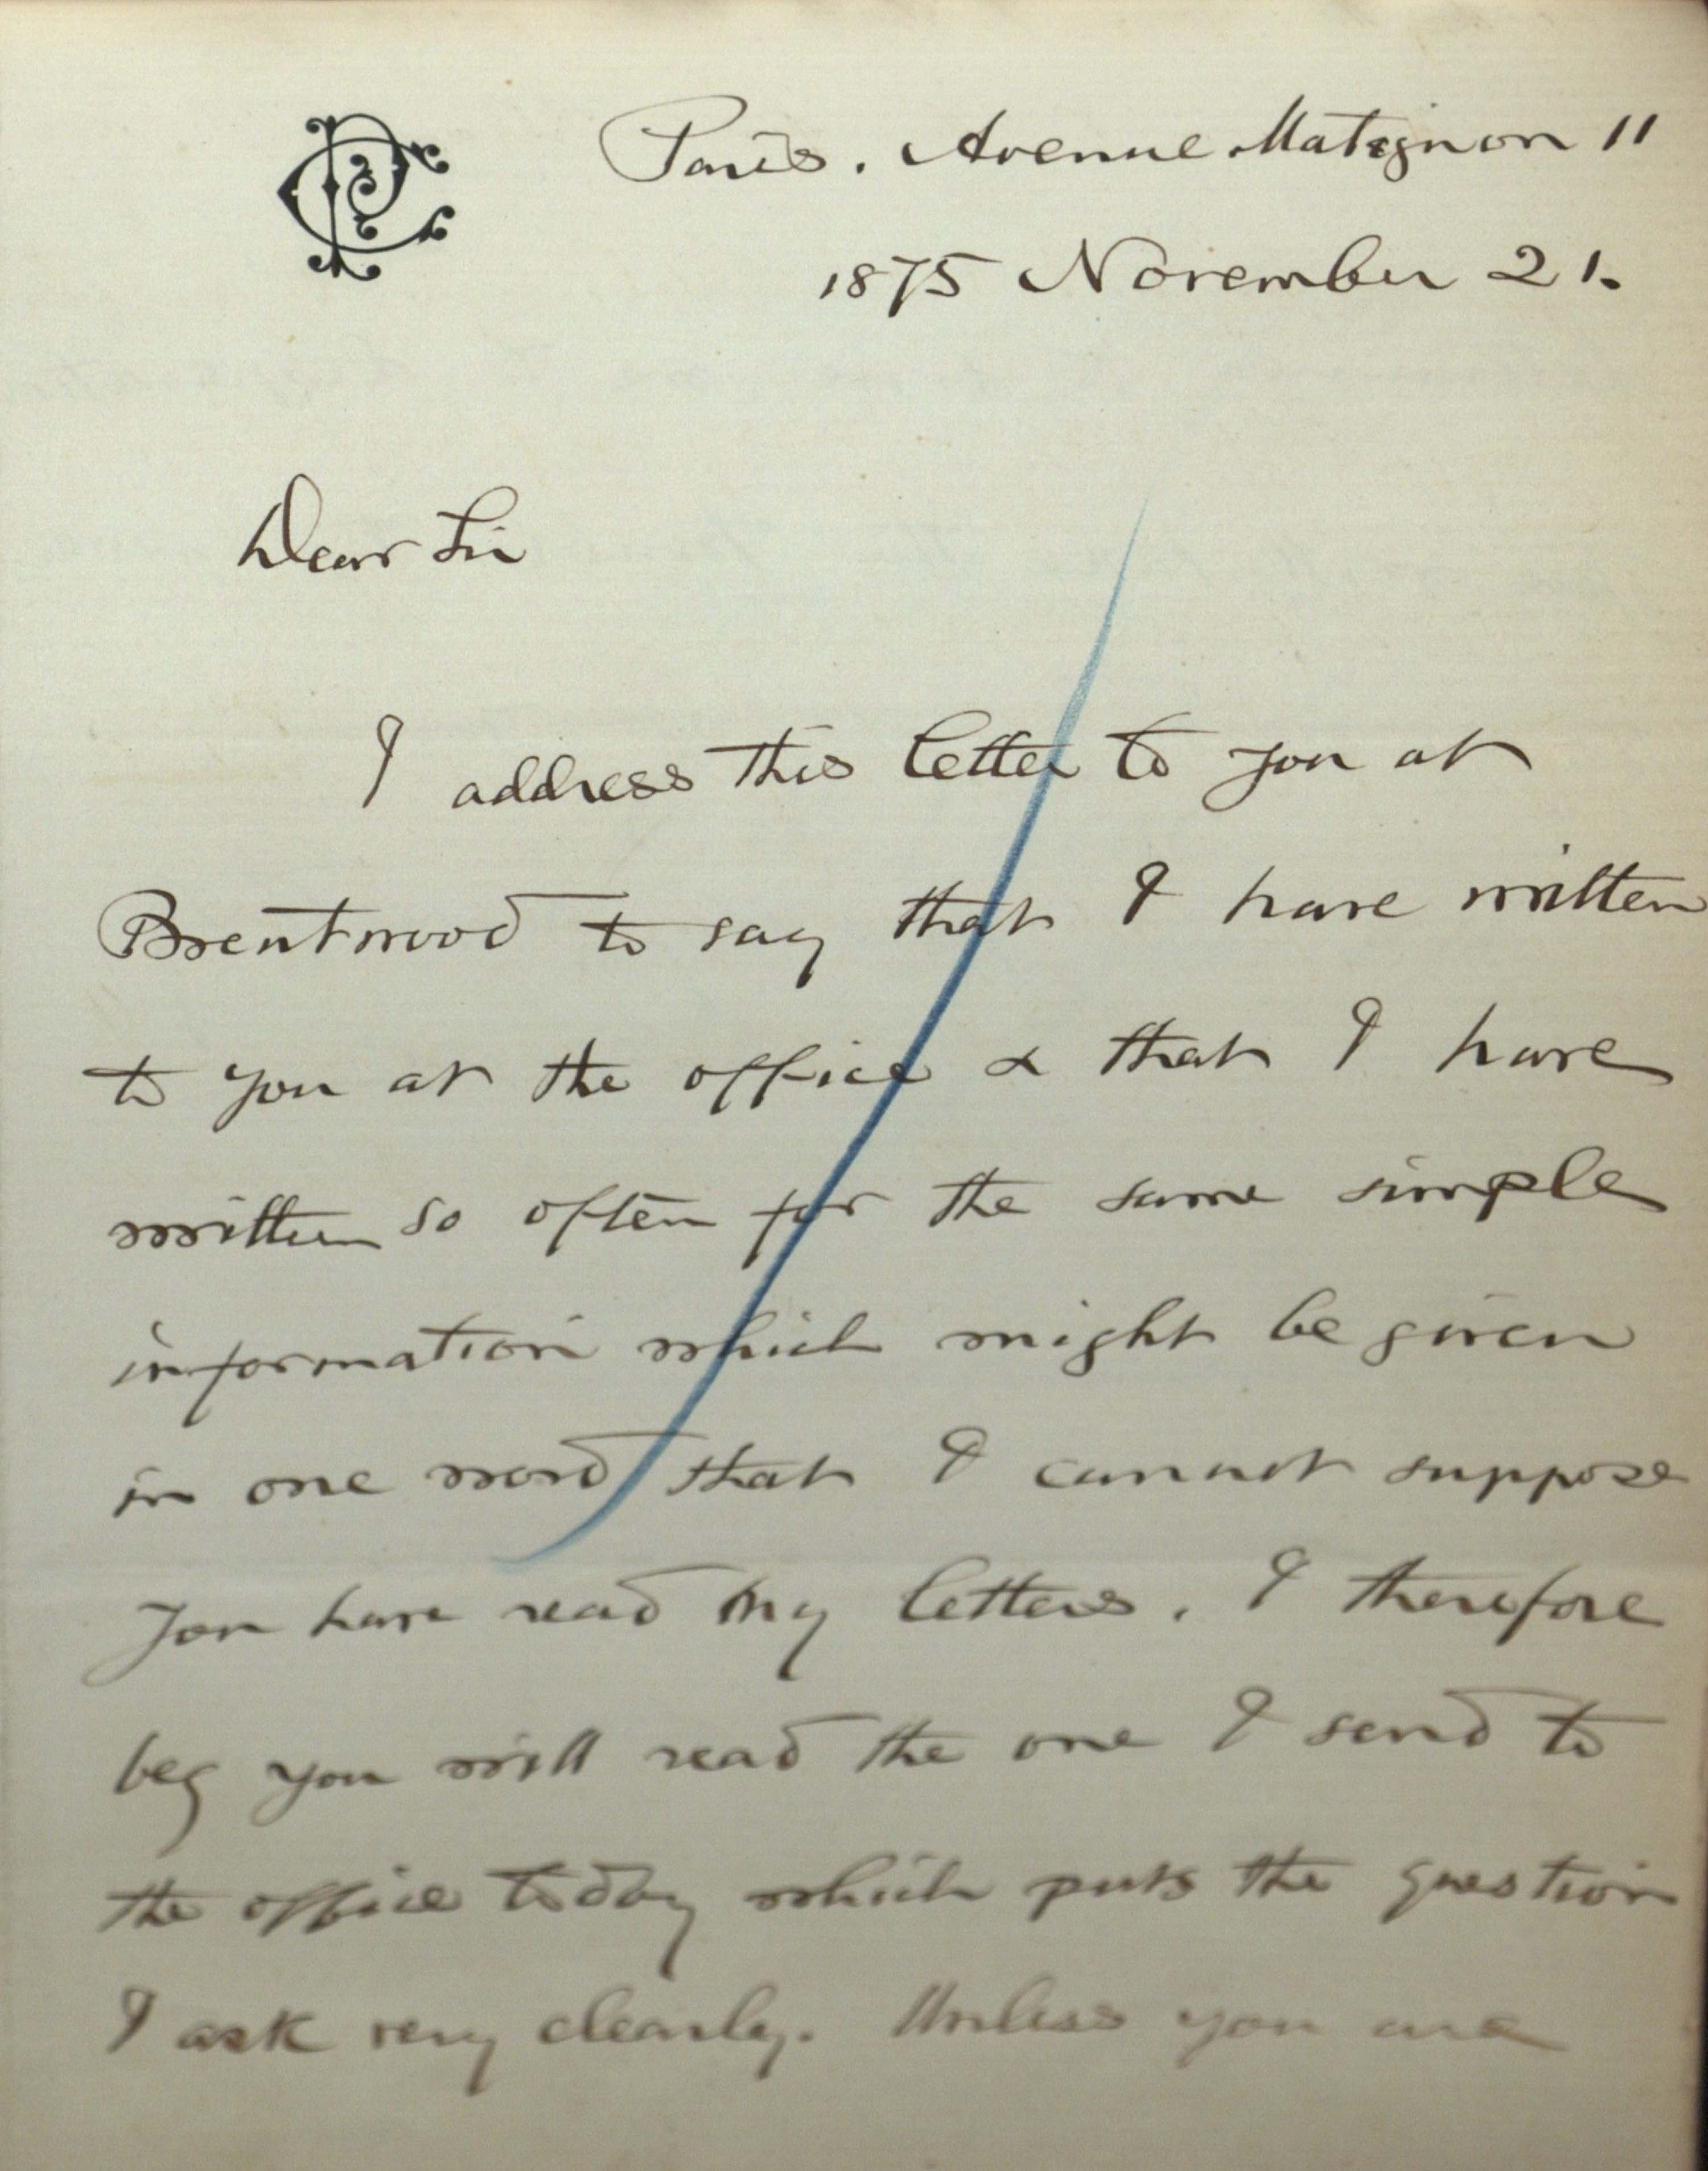 Paris. Avenue Matignon 11
1875 November 21.
Dear Sir
I address this letter to you at
Brentwood to say that I have written
to you at the office & that I have
written so often for the same simple
information which might be given
in one word that I cannot suppose
you have read my letters. I therefore
beg you will read the one I send to
the office today which puts the question
I ask very clearly. Unless you are